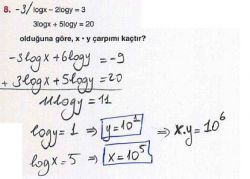 8. -3/ logx – 2logy = 3
3logx + 5logy = 20
olduğuna göre, x · y çarpımı kaçtır?
-3logx+6logy = -9
+ 3logx+5logy = 20
11logy = 11
logy = 1 ⇒ y = 10¹ ⇒ x.y = 10⁶
logx = 5 ⇒ x = 10⁵